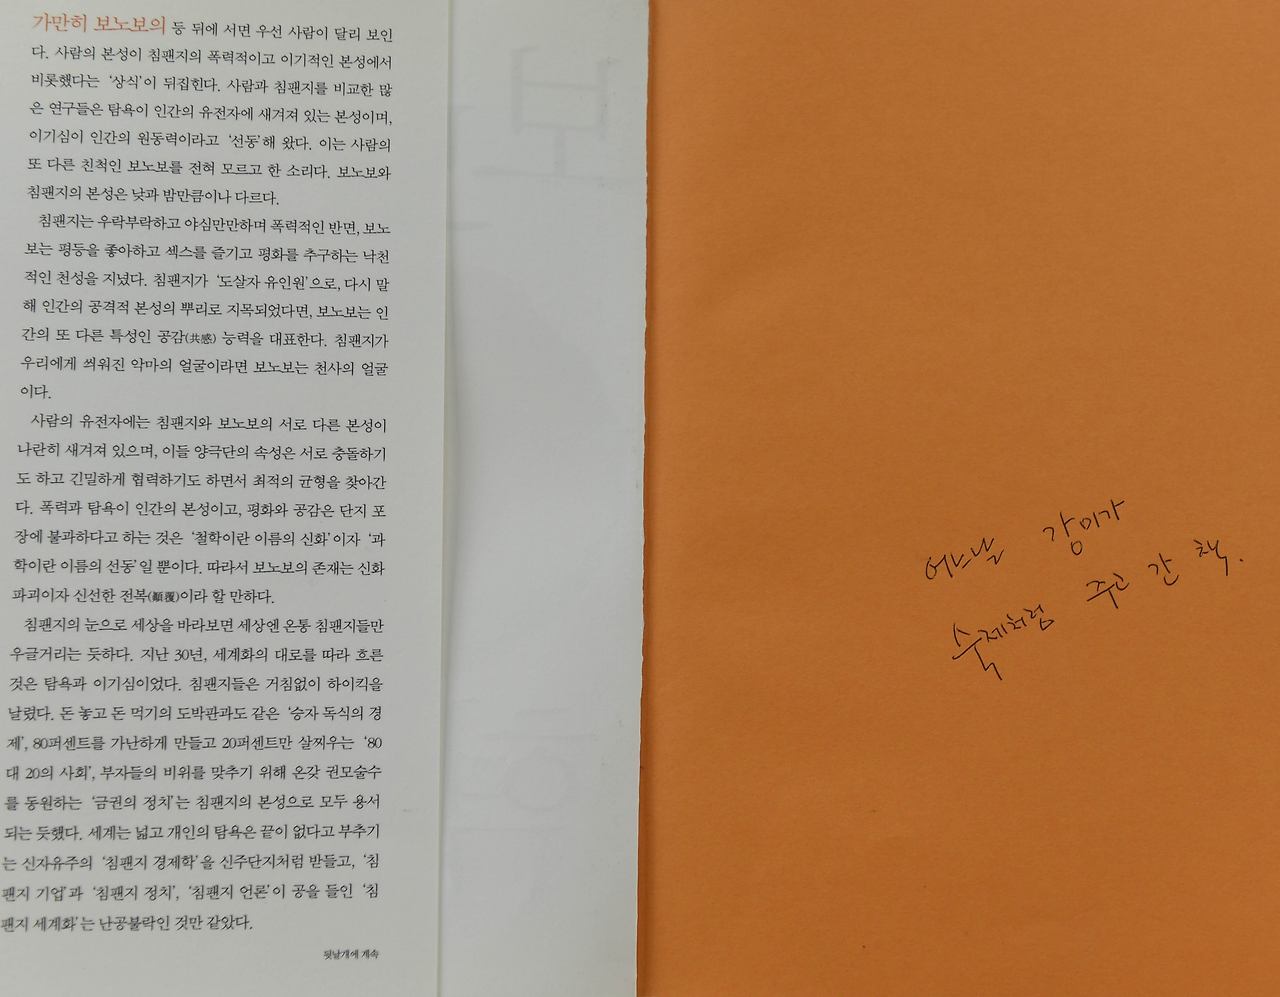 가만히 보노보의 등 뒤에 서면 우선 사람이 달리 보인
다. 사람의 본성이 침팬지의 폭력적이고 이기적인 본성에서
비롯했다는 ‘상식’이 뒤집힌다. 사람과 침팬지를 비교한 많
은 연구들은 탐욕이 인간의 유전자에 새겨져 있는 본성이며,
이기심이 인간의 원동력이라고 ‘선동’해 왔다. 이는 사람의
또 다른 친척인 보노보를 전혀 모르고 한 소리다. 보노보와
침팬지의 본성은 낮과 밤만큼이나 다르다.
침팬지는 우락부락하고 야심만만하며 폭력적인 반면, 보노
보는 평등을 좋아하고 섹스를 즐기고 평화를 추구하는 낙천
적인 천성을 지녔다. 침팬지가 ‘도살자 유인원’으로, 다시 말
해 인간의 공격적 본성의 뿌리로 지목되었다면, 보노보는 인
간의 또 다른 특성인 공감(共感) 능력을 대표한다. 침팬지가
우리에게 씌워진 악마의 얼굴이라면 보노보는 천사의 얼굴
이다.
사람의 유전자에는 침팬지와 보노보의 서로 다른 본성이
나란히 새겨져 있으며, 이들 양극단의 속성은 서로 충돌하기
도 하고 긴밀하게 협력하기도 하면서 최적의 균형을 찾아간
다. 폭력과 탐욕이 인간의 본성이고, 평화와 공감은 단지 포
장에 불과하다고 하는 것은 ‘철학이란 이름의 신화’이자 ‘과
학이란 이름의 선동’일 뿐이다. 따라서 보노보의 존재는 신화
파괴이자 신선한 전복(顚覆)이라 할 만하다.
침팬지의 눈으로 세상을 바라보면 세상엔 온통 침팬지들만
우글거리는 듯하다. 지난 30년, 세계화의 대로를 따라 흐른
것은 탐욕과 이기심이었다. 침팬지들은 거침없이 하이킥을
날렸다. 돈 놓고 돈 먹기의 도박판과도 같은 ‘승자 독식의 경
제’, 80퍼센트를 가난하게 만들고 20퍼센트만 살찌우는 ‘80
대 20의 사회’, 부자들의 비위를 맞추기 위해 온갖 권모술수
를 동원하는 ‘금권의 정치’는 침팬지의 본성으로 모두 용서
되는 듯했다. 세계는 넓고 개인의 탐욕은 끝이 없다고 부추기
는 신자유주의 ‘침팬지 경제학’을 신주단지처럼 받들고, ‘침
팬지 기업’과 ‘침팬지 정치’, ‘침팬지 언론’이 공을 들인 ‘침
팬지 세계화’는 난공불락인 것만 같았다.
뒷날개에 계속
어느날 강미가
숙제처럼 주고 간 책.